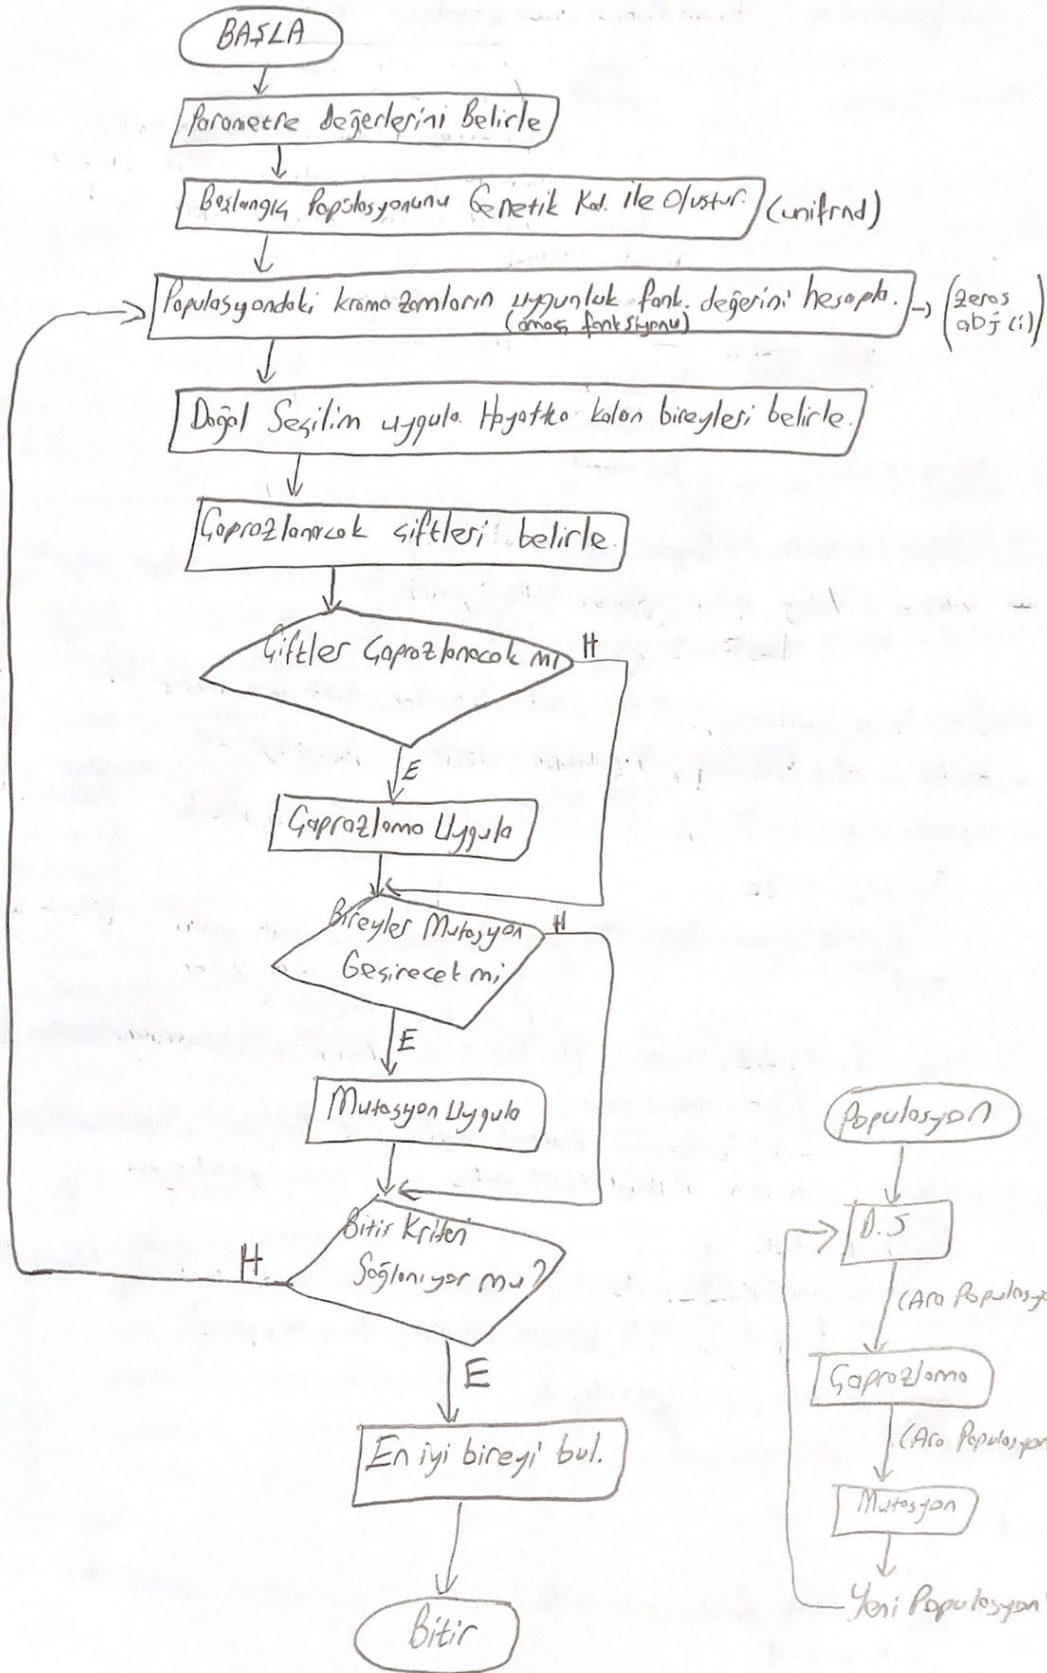 BAŞLA
Parametre Değerlerini Belirle
Başlangıç Popülasyonunu Genetik Kod. ile Oluştur. (unifrnd)
Populasyondaki kromozomların uygunluk fonk. değerini hesapla. → (zeros
(amaç fonksiyonu) obj (i))
Doğal Seçilim uygula. Hayatta kalan bireyleri belirle.
Çaprazlanacak çiftleri belirle.
Çiftler Çaprazlanacak mı H
E
Çaprazlama Uygula
Bireyler Mutasyon H
Geçirecek mi
E
Mutasyon Uygula
Bitiş Kriteri
H Sağlanıyor mu?
E
En iyi bireyi bul.
Bitir
Populasyon
D.S
(Ara Populasyo
Çaprazlama
(Ara Populasyon
Mutasyon
Yeni Populasyon